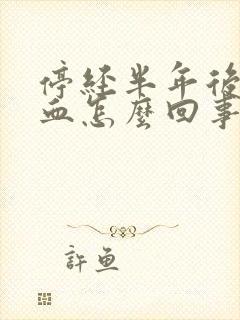 停經半年後
血怎麼回事
許魚